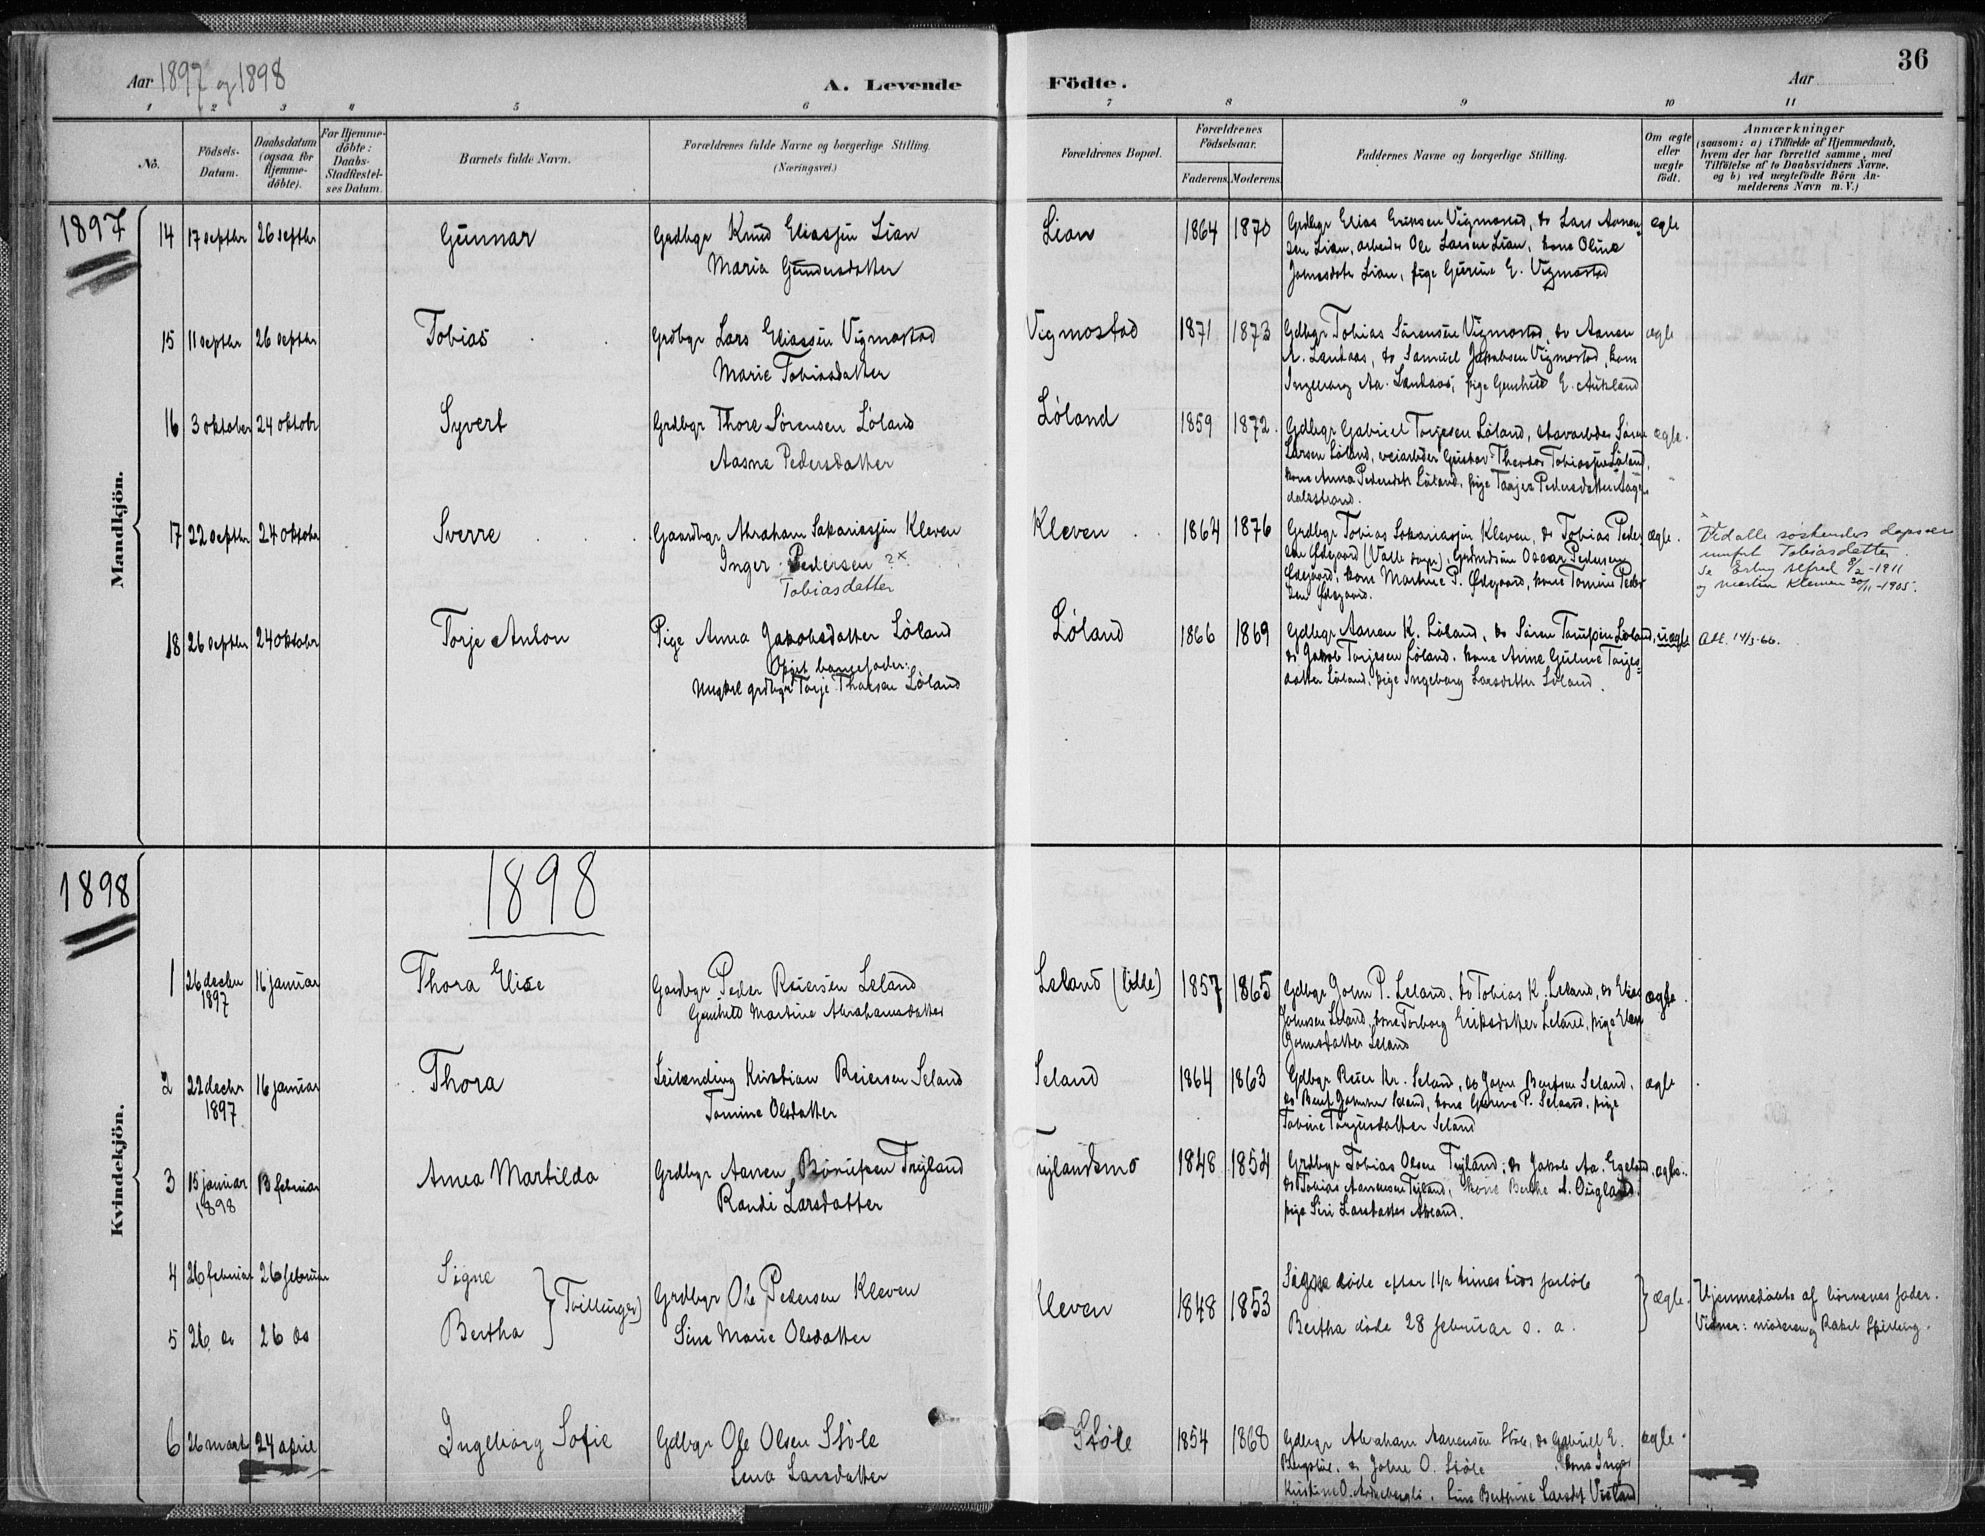 36
Aar 1897 og 1898
A. Levende Födte.
Aar
1 2 3 4 5 6 7 8 9 10 11
No.
Födsels-Datum.
Daabsdatum (ogsaa for Hjemme-döbte).
For Hjemme-döbte: Daabs-Stadfæstel-ses Datum.
Barnets fulde Navn.
Forældrenes fulde Navne og borgerlige Stilling. (Næringsvei.)
Forældrenes Bopæl.
Forældrenes Födselsaar.
Faderens. Moderens.
Faddernes Navne og borgerlige Stilling.
Om ægte eller uægte födt.
Anmærkninger
(saasom: a) i Tilfælde af Hjemmedaab, hvem der har forrettet samme, med Tilföielse af to Daabsvidners Navne, og b) ved uægtefödte Börn An-melderens Navn m. V.)
1897
Mandkjön.
14 17 septbr 26 septbr Gunnar Grdbgr Knud Eliassøn Lian
Maria Gundersdatter
Lian 1864 1870 Grdbgr Elias Eriksen Vigmostad, do Lars Aanen-
sen Lian, arbeider Ole Larsen Lian, kone Oline
Lian, pige Gurine E. Vigmostad
ægte
15 11 septbr 26 septbr Tobias Grdbgr Lars Eliassen Vigmostad
Marie Tobiasdatter
Vigmostad 1871 1873 Gdbgr Tobias Sørensen Vigmostad, do Aanen
A. Lauhaas, do Samuel Jakobsen Vigmostad, kone
Ingeborg Aa. Lauhaas, pige Gunhild E. Aukland
ægte
16 3 oktober 24 oktobr Syvert Grdbgr Thore Sørensen Löland
Aasne Pedersdatter
Löland 1859 1872. Gdbgr Gabriel Torjesen Löland, Søren
Larsen Löland, veiarbeider Gustav Theodor Tobiassen Löland,
kone Anna Pedersdtr Löland, pige Taarjer Pedersdatter Aage-
dalstrand.
ægte.
17 22 septbr 24 oktobr Sverre Gaardbgr Abraham Sakariassøn Kleven
Inger Pedersen ?x
Tobiasdatter
Kleven 1864 1876 Grdbgr Tobias Sakariassøn Kleven, do Tobias Peder-
sen Ødegaard (Valle sogn), Oscar Pedersen
Ødegaard, kone Martine P. Ødegaard, kone Tomine Peder-
sen Ødegaard.
ægte.
x Ved alle søskendes daaper
Tobiasdatter.
Se Alfred 8/2-1911
og Kleven 20/11-1905.
18 26 septbr 24 oktober Torje Anton Pige Anna Jakobsdatter Löland
Opgit barnefader:
grdbgr Torje Thorsen Löland
Löland 1866 1869 Gdbgr Aanen K. Löland, do Søren Löland,
do Jakob Torjesen Löland, kone Anne Guline Torjes-
datter Löland, pige Ingeborg Larsdatter Löland.
uægte
Att. 14/3-66.
1898
1898
Kvindekjön.
1 26 decbr 1897 16 januar Thora Elise Gaardbgr Peder Reiersen Leland
Gunhild Martine Abrahamsdatter
Leland (lille) 1857 1865 Gdbgr John P. Leland, do Tobias K. Leland, do Elias
Johnsen Leland, kone Torborg Eriksdatter Leland, pige
Johnsdatter Leland
ægte.
2 22 decbr 1897 16 januar Thora Leilending Kristian Reiersen Seland
Tomine Olsdatter
Seland 1864 1863 Gdbgr Reier Kr. Seland, do John Berntsen Seland,
do Bernt Johnsen Seland, kone Gurine P. Seland, pige
Tobine Torgusdatter Seland
ægte
3 15 januar 1898 13 februar Anna Martilda Grdbgr Aanen Tryland
Randi Larsdatter
Trylandsmo 1848 1854 Grdbgr Tobias Olsen Tryland, do Jakob Aa. Egeland
do Tobias Aanensen Tryland, kone Berthe A. Øugland,
pige Siri Larsdatter
ægte.
4 26 februar 26 februar Signe
5 26 do 26 do Bertha
} Tvillinger)
Grdbgr Ole Pedersen Kleven
Sine Marie Olsdatter
Kleven 1848 1853 Signe døde efter 1 1/2 times tids forløb
Bertha døde 28 februar s. a.
ægte.
Hjemmedøbte af børnenes fader.
Vidner: moderen og Rakel Spilling.
6 26 marts 24 april Ingeborg Sofie Gdbgr Ole Olsen Støle
Lena Larsdatter
Støle 1854 1868 Gdbgr Abraham Aanensen Støle, do Gabriel E.
do John O. Støle kone Inger
Kristine O.
ægte.